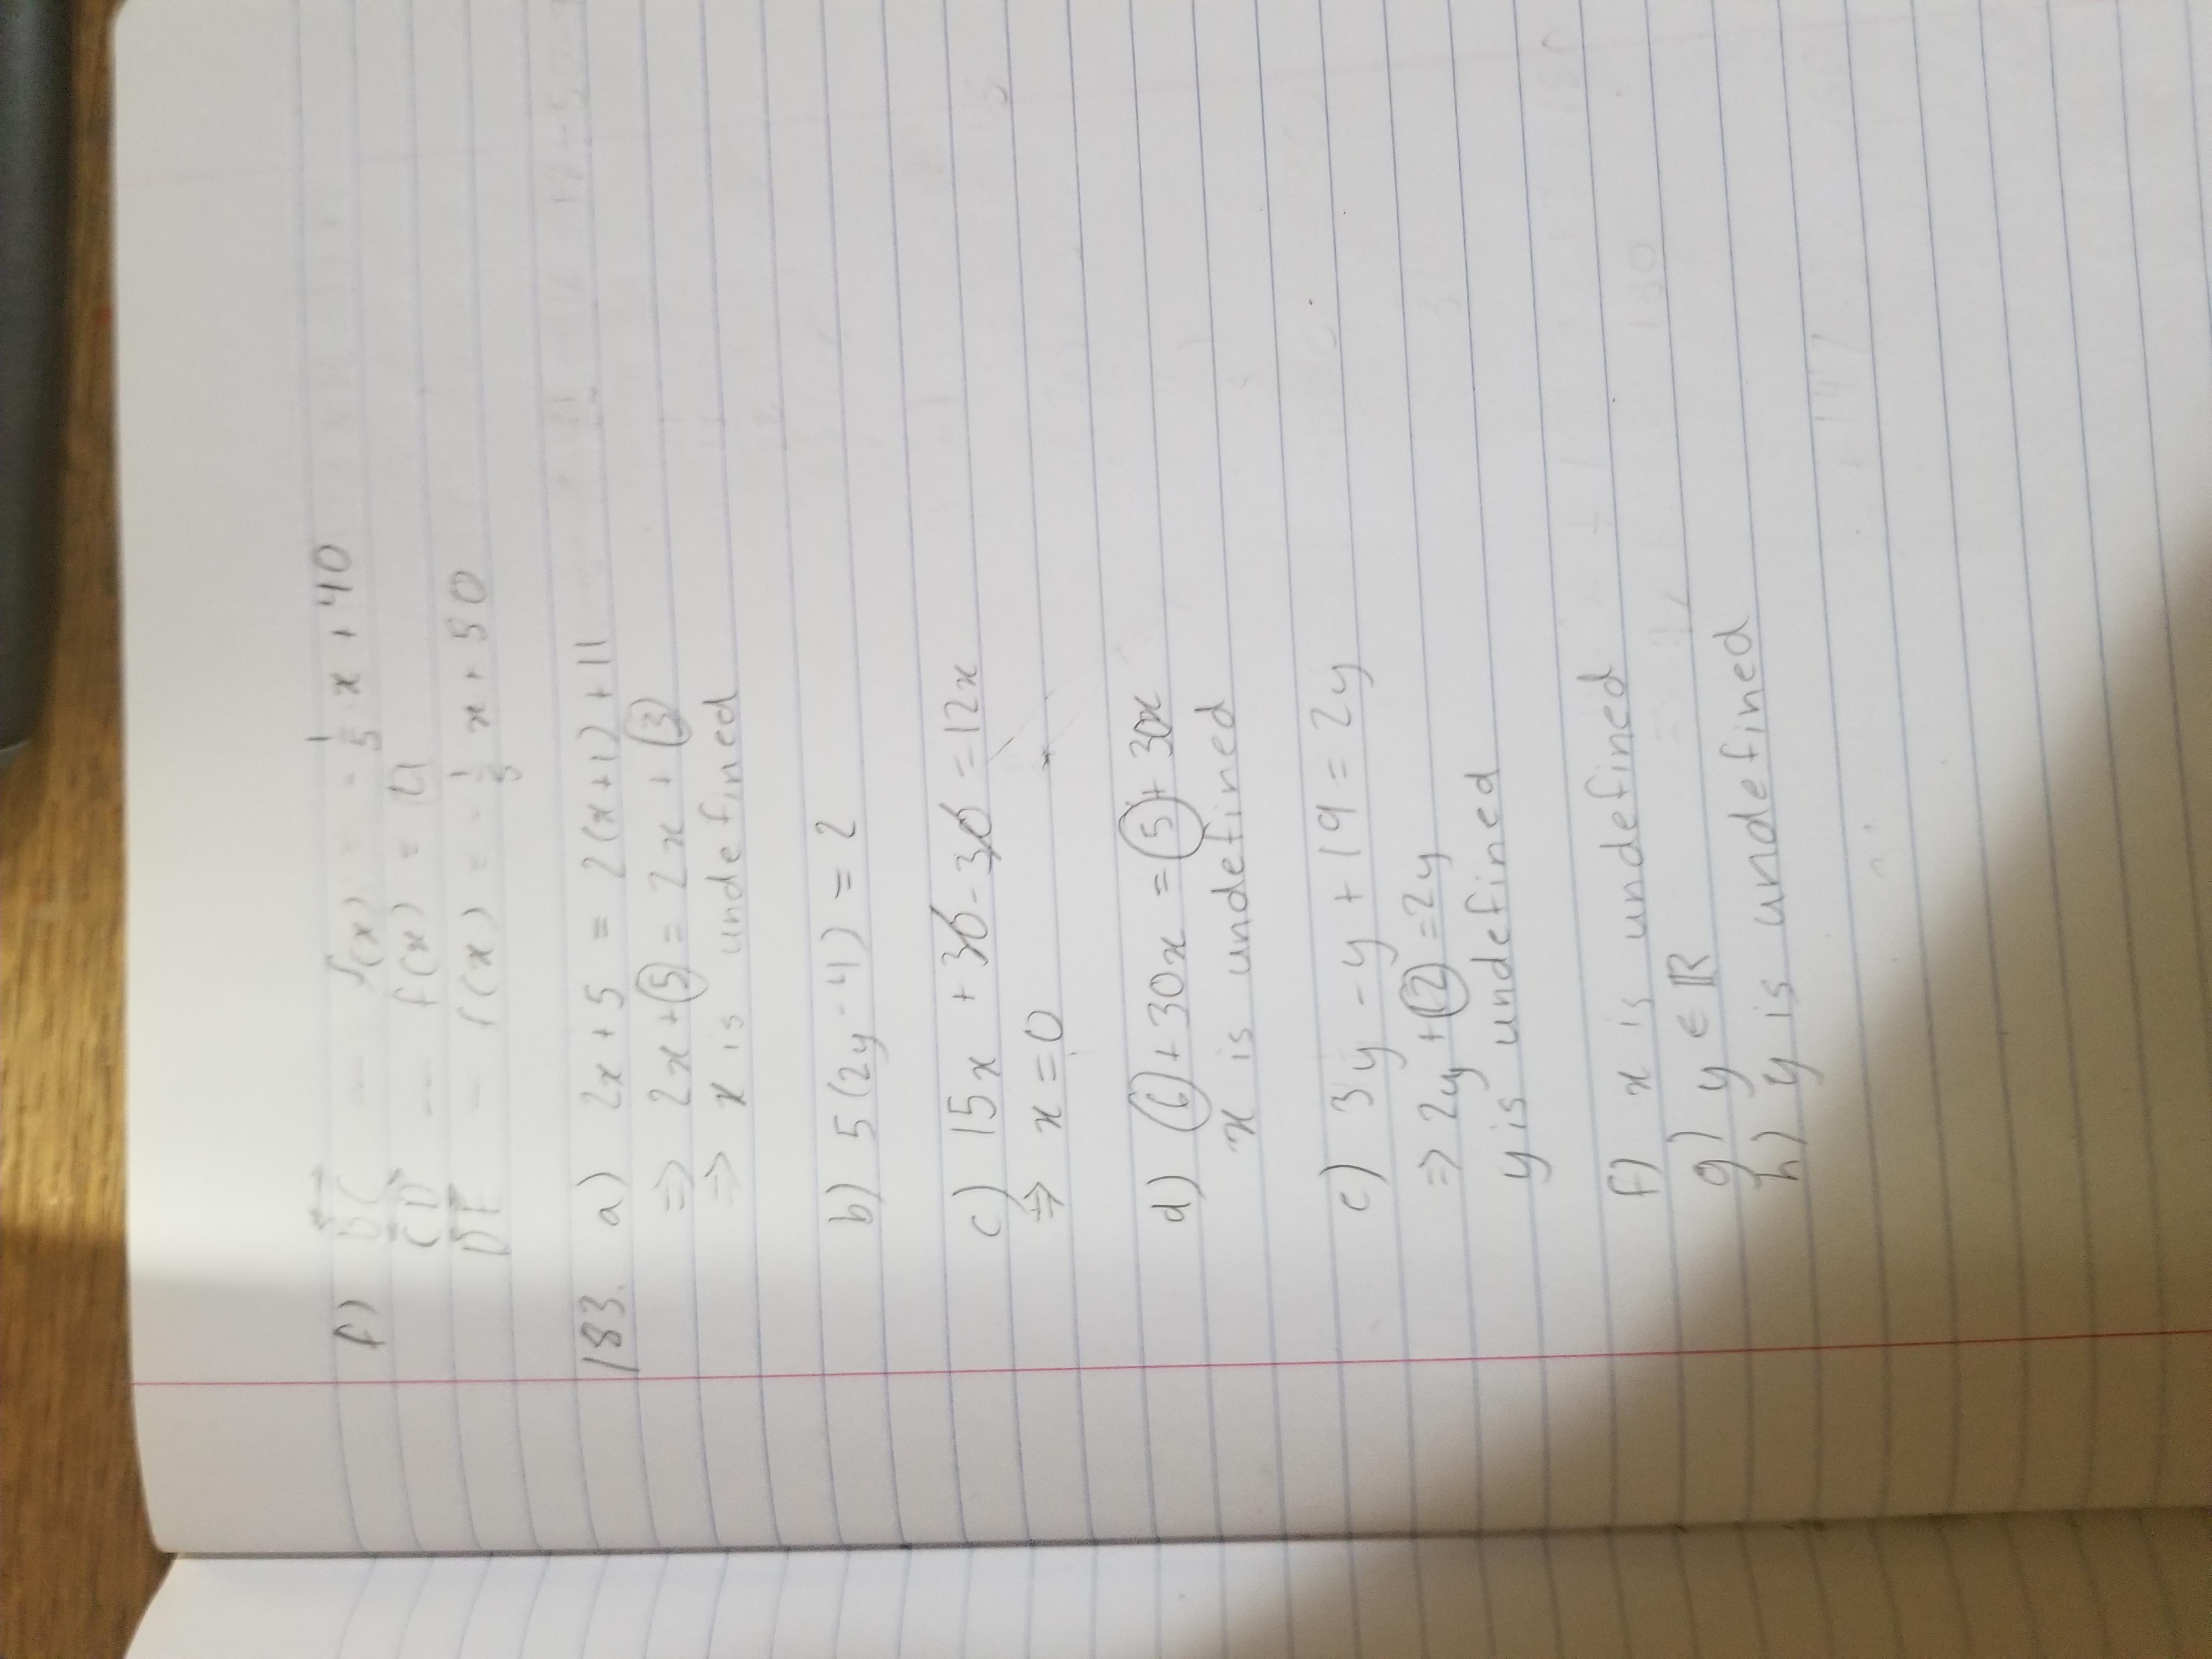 f) BC — f(x) = -1/5 x + 40
CD — f(x) = 4
DE — f(x) = -1/5 x + 50
183. a) 2x + 5 = 2(x+1) + 11
⇒ 2x + 5 = 2x + 3
⇒ x is undefined
b) 5(2y - 4) = 2
c) 15x + 30 - 30 = 12x
⇒ x = 0
d) 6 + 30x = 5 + 30x
x is undefined
e) 3y - y + 19 = 2y
⇒ 2y + 12 = 2y
y is undefined
f) x is undefined
g) y ∈ ℝ
h) y is undefined